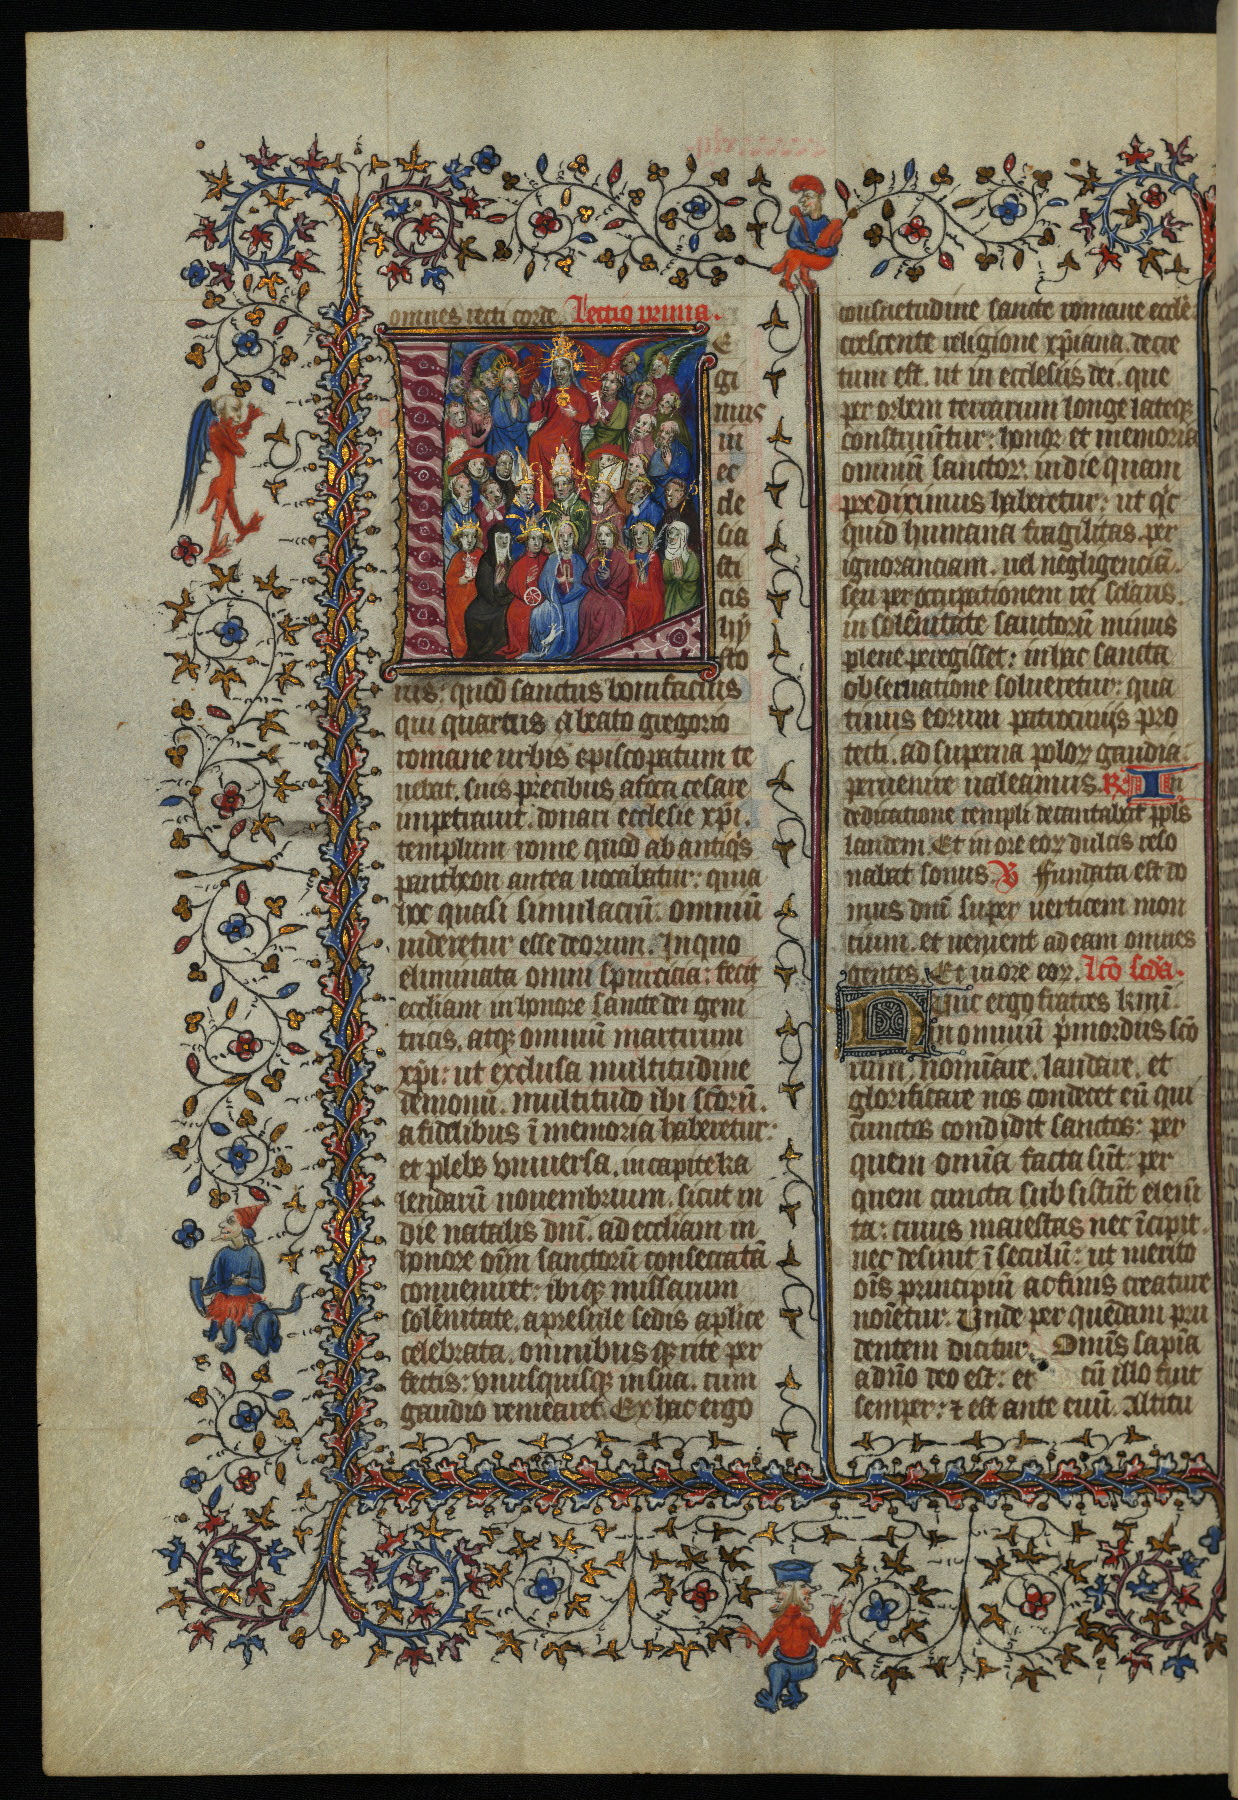 omnes recti corde. Lectio prima.
E
gi
mus
in
ec
cle
sia
sti
cis
hy
sto
riis: quod sanctus bonifacius
qui quartus a beato gregorio
romane urbis episcopatum te
nebat. suis precibus a foca cesare
impetrauit. donari ecclesie xpi.
templum rome quod ab antiqis
pantheon antea uocabatur: quia
hoc quasi simulacrū. omniū
uideretur esse deorum. In quo
eliminata omni spurcicia: fecit
eccliam in honore sancte dei geni
tricis. atqȝ omniū martirum
xpi: ut exclusa multitudine
demonū. multitudo ibi scōrū.
a fidelibus ī memoria haberetur:
et plebs vniuersa. in capite ka
lendarū nouembrium. sicut in
die natalis dnī. ad eccliam in
honore oīm sanctorū consecratā
conueniret: ibiqȝ missarum
solēnitate. a presule sedis aplice
celebrata. omnibus qȝ rite per
fectis: vnusquisqȝ in sua. cum
gaudio remearet. Ex hac ergo
consuetudine sancte romane eccle
crescente religione xpiana. decre
tum est. ut in ecclesiis dei. que
per orbem terrarum longe lateqȝ
construūtur: honor et memoria
omniū sanctorꝝ. in die quam
prediximus haberetur: ut qic
quid humana fragilitas. per
ignoranciam. uel negligenciā.
seu per occupationem rei secularis.
in solēnitate sanctorū minus
plene peregisset: in hac sancta
obseruatione solueretur: qua
tinus eorum patrocinijs pro
tecti. ad superna poloꝝ gaudia
peruenire ualeamus. R In
dedicatione templi decantabat ppls
laudem. Et in ore eoꝝ dulcis reso
nabat sonus. V Fundata est do
mus dnī super uerticem mon
tium. et uenient ad eam omnes
gentes. Et in ore eoꝝ. Lcō scdā.
Hunc ergo fratres kmī.
in omniū pmordiis scō
rum. nomīare. laudare. et
glorificare nos condecet eū qui
cunctos condidit sanctos: per
quem omīa facta sūt: per
quem cuncta subsistūt elemī
ta: cuius maiestas nec īcipit.
nec desinit ī seculū: ut merito
oīs principiū ac finis creature
noīetur. Unde per quēdam pru
dentem dicitur. Omīs sapīa
a dnō deo est: et cū illo fuit
semper: ⁊ est ante euū. Altitu